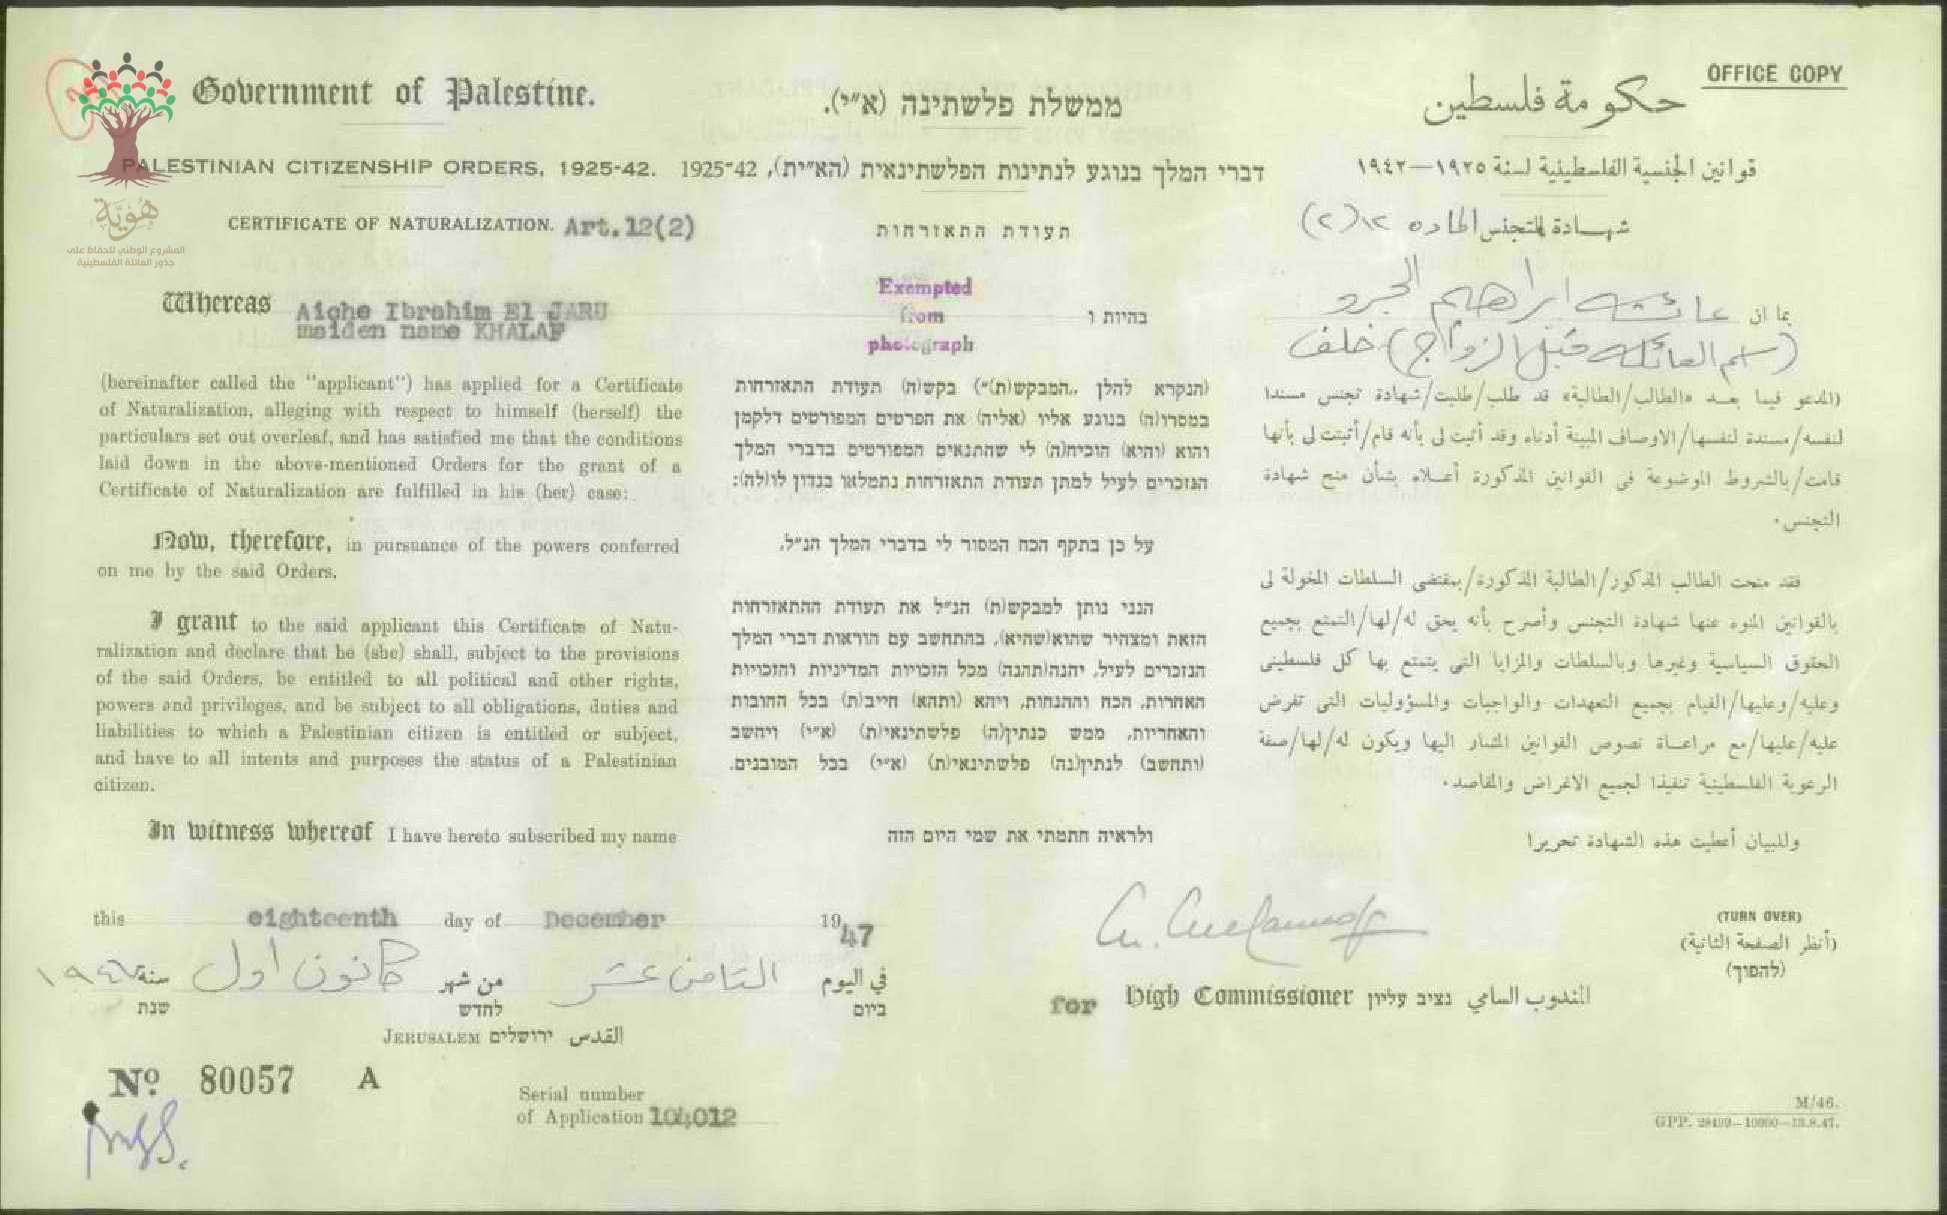 OFFICE COPY
Government of Palestine.
ממשלת פלשתינה (א״י).
حكومة فلسطين
PALESTINIAN CITIZENSHIP ORDERS, 1925-42.
דברי המלך בנוגע לנתינות הפלשתינאית (הא״ית), 1925-42
قوانين الجنسية الفلسطينية لسنة ١٩٢٥—١٩٤٢
هُوِيَّة
المشروع الوطني للحفاظ على
جذور العائلة الفلسطينية
CERTIFICATE OF NATURALIZATION. Art.12(2)
תעודת התאזרחות
شهادة التجنس المادة ١٢(٢)
Whereas Aishe Ibrahim El JARU
maiden name KHALAF
Exempted
from
photograph
בהיות ו
بما ان عائشه ابراهيم الجرو
(اسم العائلة قبل الزواج) خلف
(hereinafter called the "applicant") has applied for a Certificate
of Naturalization, alleging with respect to himself (herself) the
particulars set out overleaf, and has satisfied me that the conditions
laid down in the above-mentioned Orders for the grant of a
Certificate of Naturalization are fulfilled in his (her) case:
Now, therefore, in pursuance of the powers conferred
on me by the said Orders,
I grant to the said applicant this Certificate of Natu-
ralization and declare that he (she) shall, subject to the provisions
of the said Orders, be entitled to all political and other rights,
powers and privileges, and be subject to all obligations, duties and
liabilities to which a Palestinian citizen is entitled or subject,
and have to all intents and purposes the status of a Palestinian
citizen.
In witness whereof I have hereto subscribed my name
(הנקרא להלן ,,המבקש(ת)״) בקש(ה) תעודת התאזרחות
במסרו(ה) בנוגע אליו (אליה) את הפרטים המפורטים דלקמן
והוא (והיא) הוכיח(ה) לי שהתנאים המפורטים בדברי המלך
הנזכרים לעיל למתן תעודת התאזרחות נתמלאו בנדון לו(לה):
על כן בתקף הכח המסור לי בדברי המלך הנ״ל,
הנני נותן למבקש(ת) הנ״ל את תעודת ההתאזרחות
הזאת ומצהיר שהוא(שהיא), בהתחשב עם הוראות דברי המלך
הנזכרים לעיל, יהנה(תהנה) מכל הזכויות המדיניות והזכויות
האחרות, הכח וההנחות, ויהא (ותהא) חייב(ת) בכל החובות
והאחריות, ממש כנתין(ה) פלשתינאי(ת) (א״י) ויחשב
(ותחשב) לנתין(נה) פלשתינאי(ת) (א״י) בכל המובנים.
ולראיה חתמתי את שמי היום הזה
(المدعو فيما بعد «الطالب/الطالبة» قد طلب/طلبت/شهادة تجنس مسندا
لنفسه/مسندة لنفسها/الاوصاف المبينة أدناه وقد أثبت لى بأنه قام/أثبتت لى بأنها
قامت/بالشروط الموضوعة فى القوانين المذكورة أعلاه بشأن منح شهادة
التجنس.
فقد منحت الطالب المذكور/الطالبة المذكورة/بمقتضى السلطات المخولة لى
بالقوانين المنوه عنها شهادة التجنس وأصرح بأنه يحق له/لها/التمتع بجميع
الحقوق السياسية وغيرها وبالسلطات والمزايا التى يتمتع بها كل فلسطينى
وعليه/وعليها/القيام بجميع التعهدات والواجبات والمسؤوليات التى تفرض
عليه/عليها/مع مراعاة نصوص القوانين المشار اليها ويكون له/لها/صفة
الرعوية الفلسطينية تنفيذا لجميع الاغراض والمقاصد.
وللبيان أعطيت هذه الشهادة تحريرا
this eighteenth day of December 1947
في اليوم الثامن عشر من شهر كانون اول سنة
ביום לחדש שנת
JERUSALEM ירושלים القدس
for High Commissioner נציב עליון المندوب السامي
(TURN OVER)
(أنظر الصفحة الثانية)
(להפוך)
No. 80057 A
Serial number
of Application 104012
M/46.
GPP. 28499—10000—13.8.47.